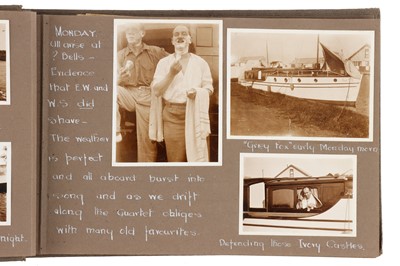 MONDAY.
All arise at
? Bells -
Evidence
that E.W and
W.S did
shave -
The weather
is perfect
and all aboard burst into
song and as we drift
along the Quartet obliges
with many old favourites.
"Grey Fox" early Monday morn
Defending those Ivory Castles.
night.